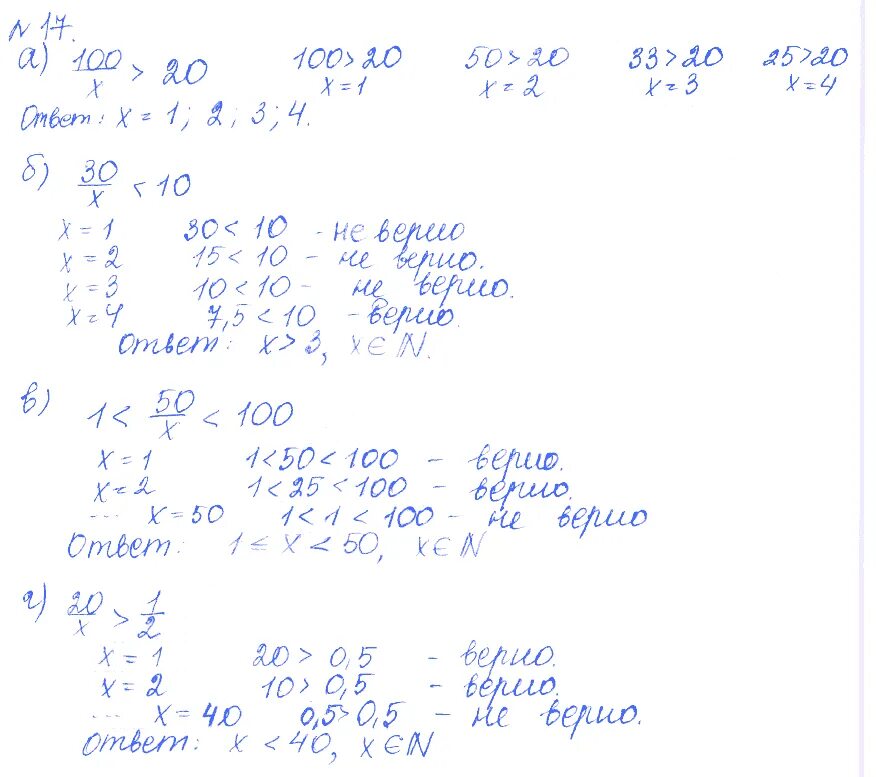 N 17.
а) 100/x > 20 100>20 50>20 33>20 25>20
x=1 x=2 x=3 x=4
Ответ: x = 1; 2; 3; 4.
б) 30/x < 10
x = 1 30 < 10 - не верно
x = 2 15 < 10 - не верно.
x = 3 10 < 10 - не верно.
x = 4 7,5 < 10 - верно.
Ответ: x > 3, x ∈ ℕ.
в) 1 < 50/x < 100
x = 1 1<50<100 - верно.
x = 2 1<25<100 - верно.
... x = 50 1<1<100 - не верно
Ответ: 1 ≤ x < 50, x ∈ ℕ
г) 20/x > 1/2
x = 1 20 > 0,5 - верно.
x = 2 10 > 0,5 - верно.
... x = 40 0,5>0,5 - не верно.
Ответ: x < 40, x ∈ ℕ